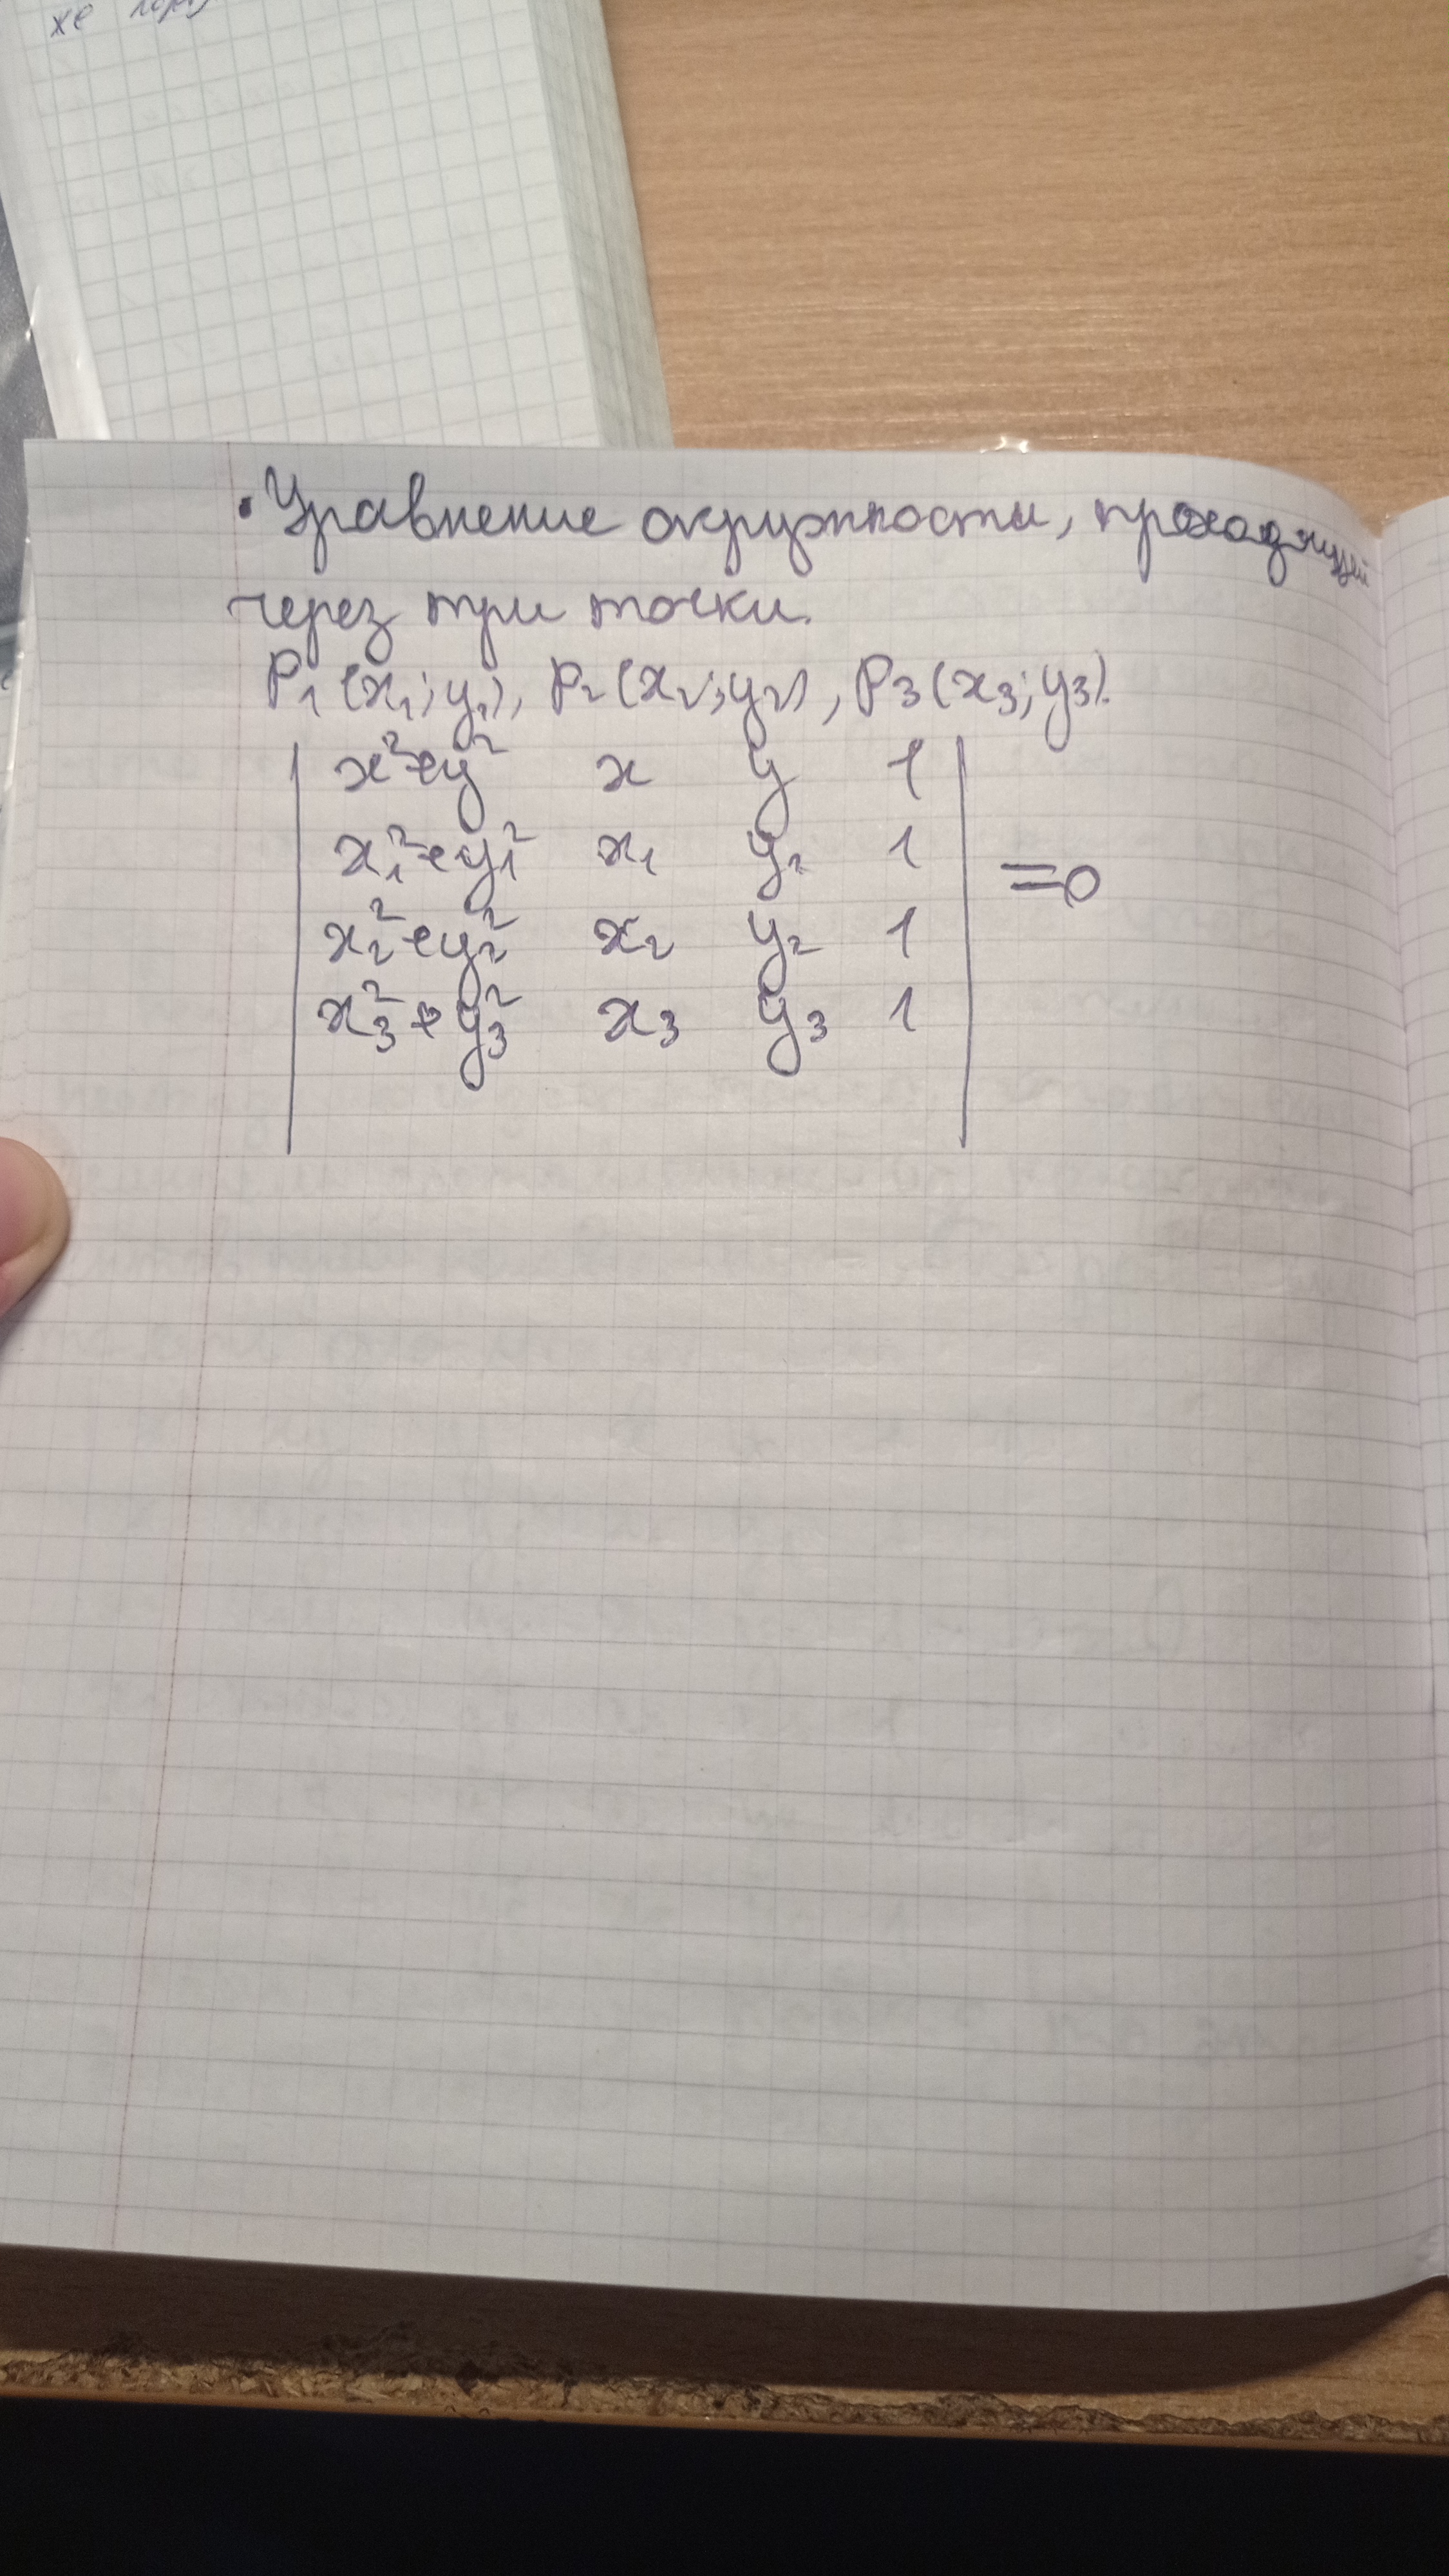 же
• Уравнение окружности, проходящей
через три точки.
P₁(x₁;y₁), P₂(x₂;y₂), P₃(x₃;y₃).
| x²+y² x y 1 |
| x₁²+y₁² x₁ y₁ 1 | =0
| x₂²+y₂² x₂ y₂ 1 |
| x₃²+y₃² x₃ y₃ 1 |